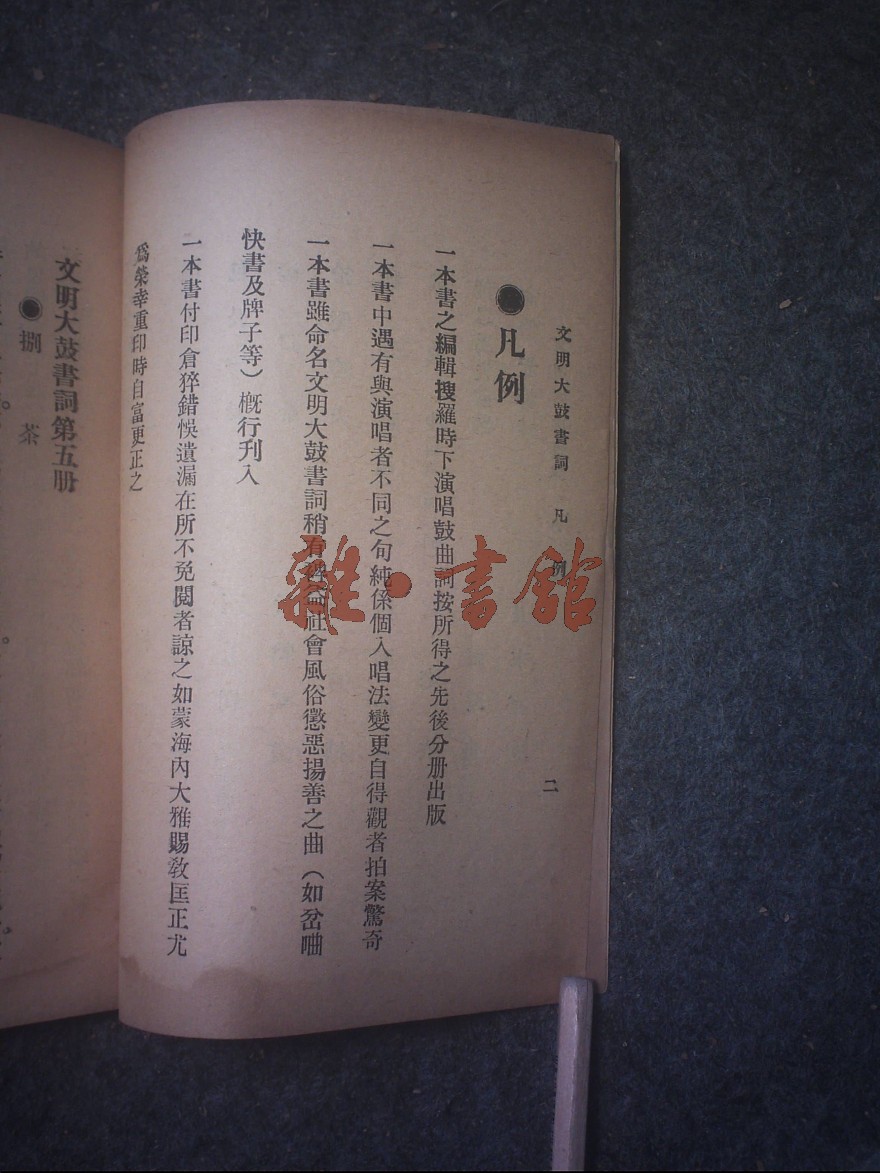 文明大鼓書詞 凡例 二
●凡例
一本書之編輯搜羅時下演唱鼓曲詞按所得之先後分册出版
一本書中遇有與演唱者不同之句純係個人唱法變更自得觀者拍案驚奇
一本書雖命名文明大鼓書詞稍有裨益社會風俗懲惡揚善之曲（如岔曲
快書及牌子等）槪行刋入
一本書付印倉猝錯悞遺漏在所不免閱者諒之如蒙海內大雅賜敎匡正尤
爲榮幸重印時自富更正之
文明大鼓書詞第五册
●捌 茶
雜·書館